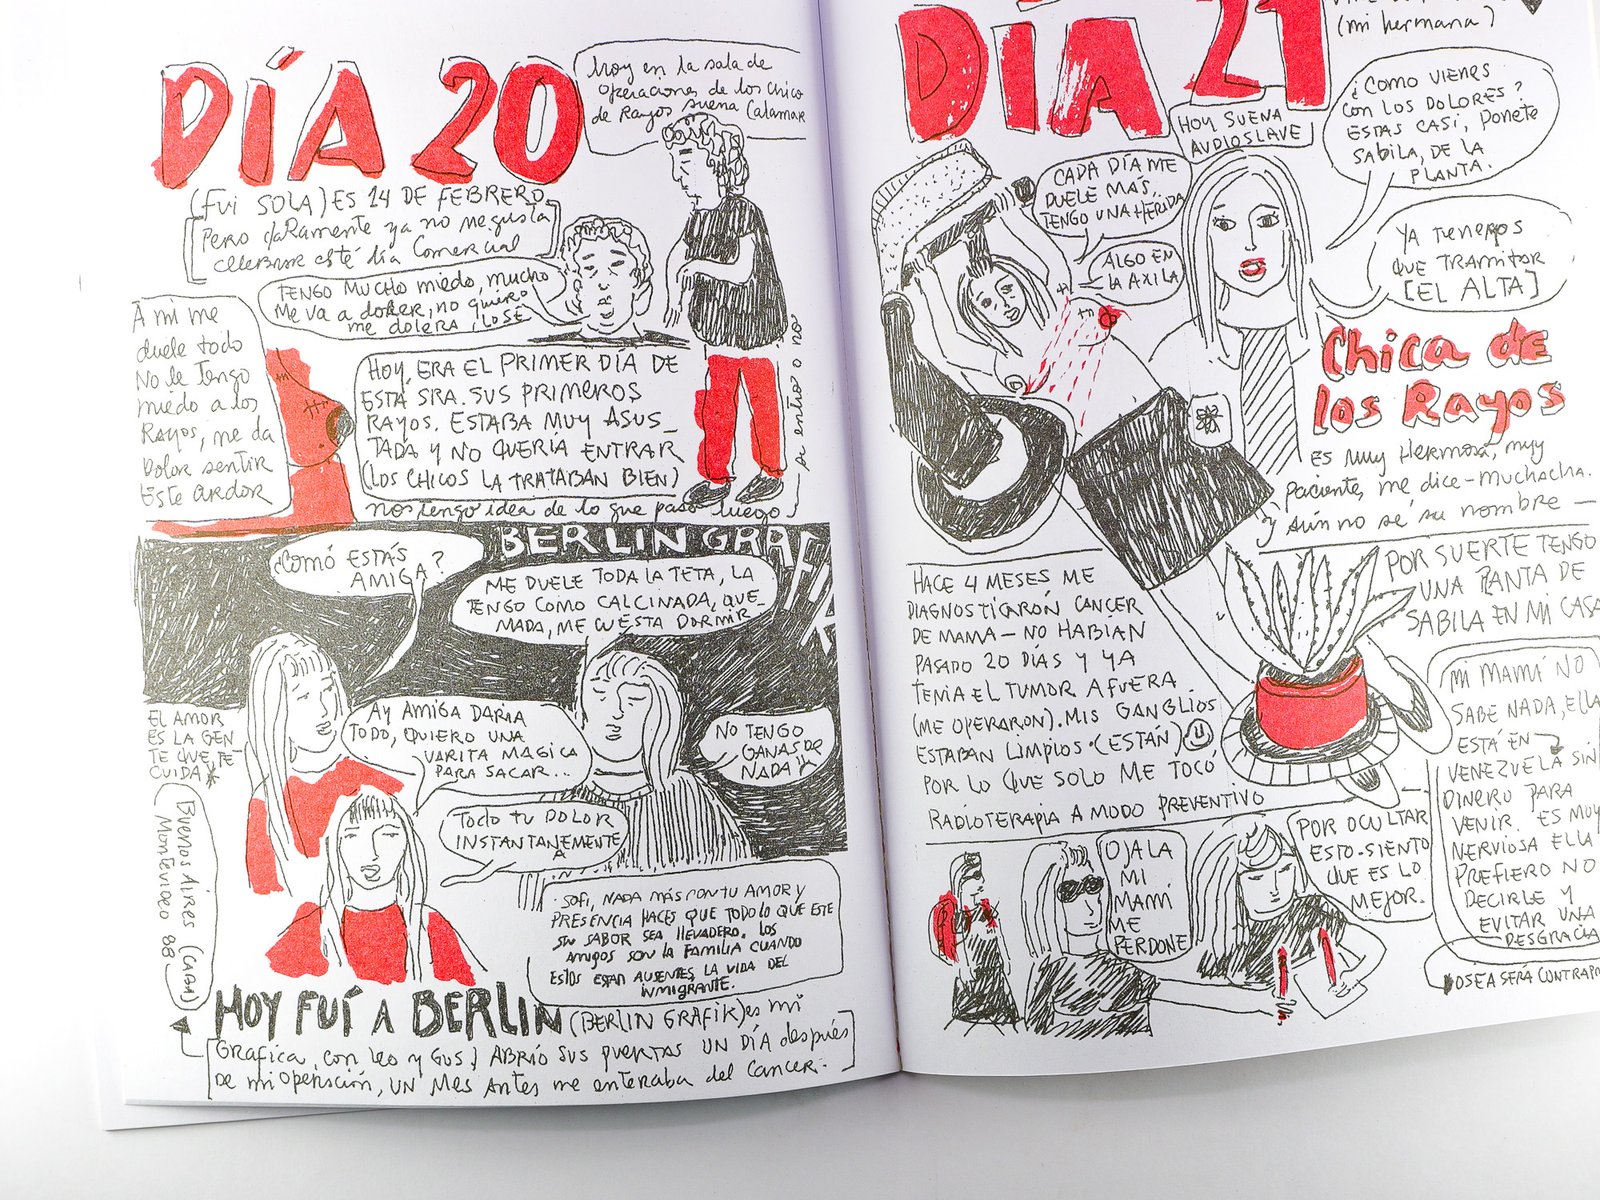 DÍA 20
Hoy en la sala de
operaciones de los chico
de Rayos suena Calamar
(FUI SOLA) ES 14 DE FEBRERO
Pero claramente ya no me gusta
celebrar esté día comercial
TENGO MUCHO MIEDO, MUCHO
ME VA A DOLER, NO QUIERO
ME DOLERA, LO SÉ
A mi me
duele todo
No le Tengo
miedo a los
Rayos, me da
Dolor sentir
Este ardor
HOY, ERA EL PRIMER DÍA DE
ESTÁ SRA. SUS PRIMEROS
RAYOS. ESTABA MUY ASUS_
TADA Y NO QUERÍA ENTRAR
(LOS CHICOS LA TRATABAN BIEN)
nos tengo idea de lo que paso luego
si entro o no
BERLIN GRAFIK
¿COMÓ ESTÁS
AMIGA?
ME DUELE TODA LA TETA, LA
TENGO COMO CALCINADA, QUE_
MADA, ME CUESTA DORMIR
EL AMOR
ES LA GEN_
TE QUE TE
CUIDA
AY AMIGA DARIA
TODO, QUIERO UNA
VARITA MAGICA
PARA SACAR...
NO TENGO
GANAS DE
NADA
TODO TU DOLOR
INSTANTANEMENTE
Buenos Aires (CABA)
Montevideo 98
SOFI, NADA MÁS CON TU AMOR Y
PRESENCIA HACES QUE TODO LO QUE ESTE
SIN SABOR SEA LLEVADERO. LOS
AMIGOS SON LA FAMILIA CUANDO
ESTOS ESTAN AUSENTES. LA VIDA DEL
INMIGRANTE.
HOY FUÍ A BERLIN (BERLIN GRAFIK) es mi
GRAFICA, CON LEO Y GUS) ABRÍO SUS PUERTAS UN DÍA después
DE MI OPERACIÓN, UN MES ANTES me enteraba del CANCER.
DÍA 21
(mi hermana)
HOY SUENA
AUDIOSLAVE
¿COMO VIENES
CON LOS DOLORES?
ESTAS CASI, PONETE
SABILA, DE LA
PLANTA.
CADA DÍA ME
DUELE MÁS,
TENGO UNA HERIDA
ALGO EN
LA AXILA
YA TENEMOS
QUE TRAMITAR
[EL ALTA]
Chica de
los Rayos
ES MUY HERMOSA, muy
paciente, me dice - muchacha.
y AÚN NO SÉ SU NOMBRE —
HACE 4 MESES ME
DIAGNOSTICARÓN CANCER
DE MAMA — NO HABÍAN
PASADO 20 DÍAS Y YA
TENIA EL TUMOR AFUERA
(ME OPERARON). MIS GANGLIOS
ESTABAN LIMPIOS (ESTAN)
POR LO QUE SOLO ME TOCÓ
RADIOTERAPIA A MODO PREVENTIVO
POR SUERTE TENGO
UNA PLANTA DE
SABILA EN MI CASA
MI MAMÁ NO
SABE NADA, ELLA
ESTÁ EN
VENEZUELA SIN
DINERO PARA
VENIR. ES MUY
NERVIOSA ELLA
PREFIERO NO
DECIRLE Y
EVITAR UNA
DESGRACIA
OSEA SERÁ CONTRAPR
OJALA
MI
MAMÍ
ME
PERDONE
POR OCULTAR
ESTO - SIENTO
QUE ES LO
MEJOR.